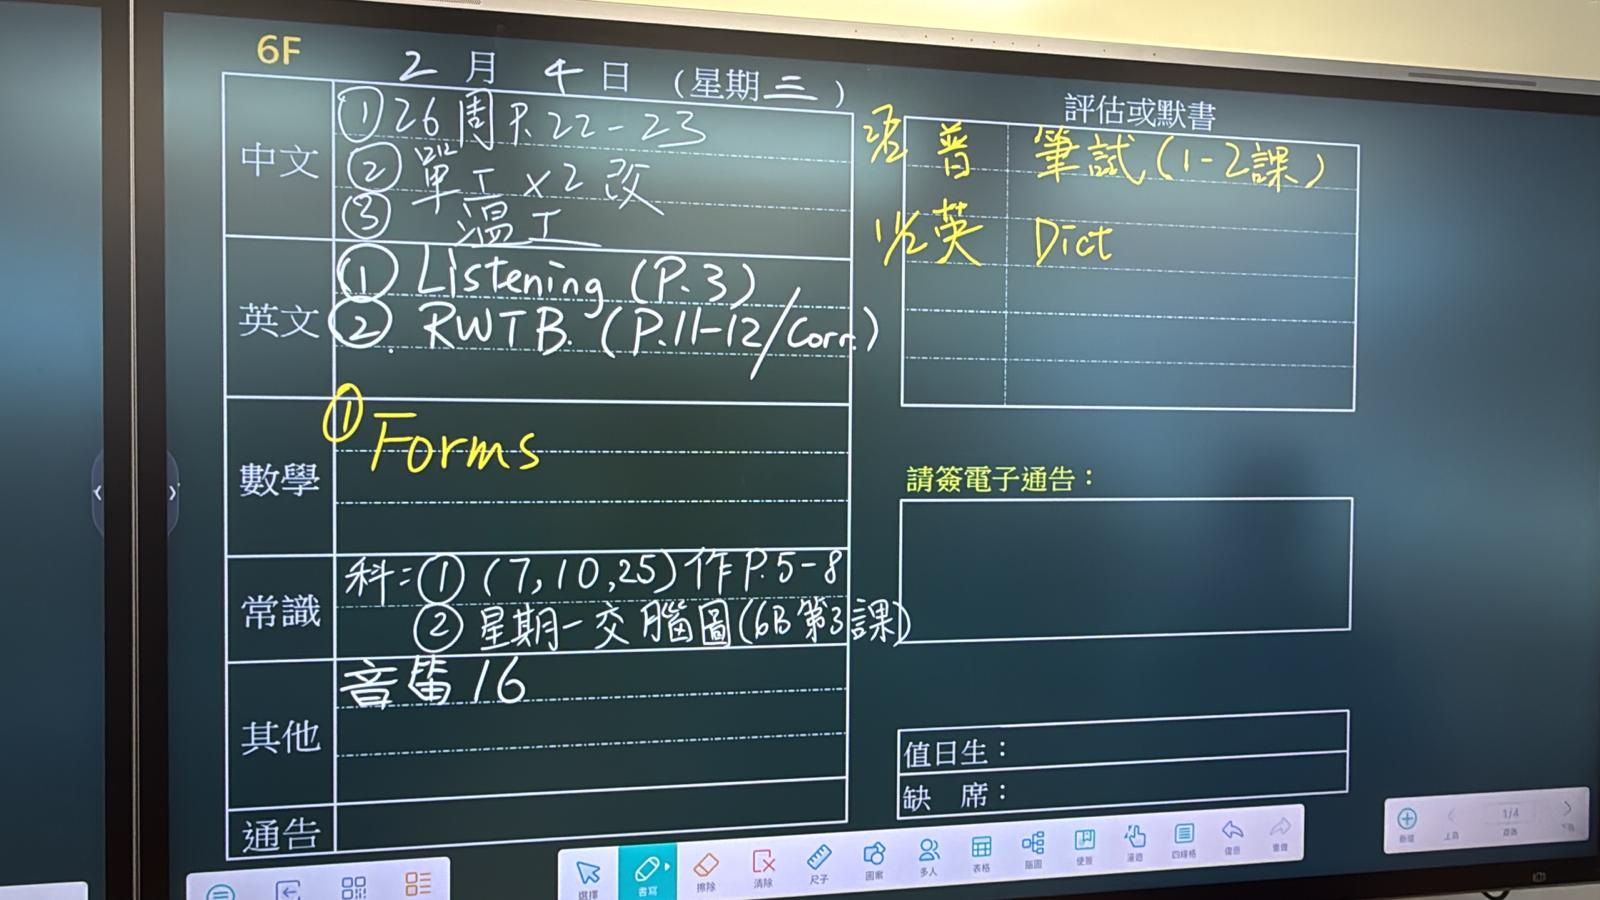 6F
2月4日（星期三）
中文
①26周P.22-23
②單工x2改
③溫工
英文
① Listening (P.3)
② RWTB. (P.11-12/Corr.)
數學
① Forms
常識
科：①(7,10,25)作P.5-8
②星期一交腦圖(6B第3課)
其他
音笛16
通告
評估或默書
普 筆試(1-2課)
英 Dict
請簽電子通告：
值日生：
缺 席：
選擇
書寫
擦除
清除
尺子
圖案
多人
表格
腦圖
便簽
漫遊
四線格
復原
重做
新增
上頁
1/4
頁面
下頁